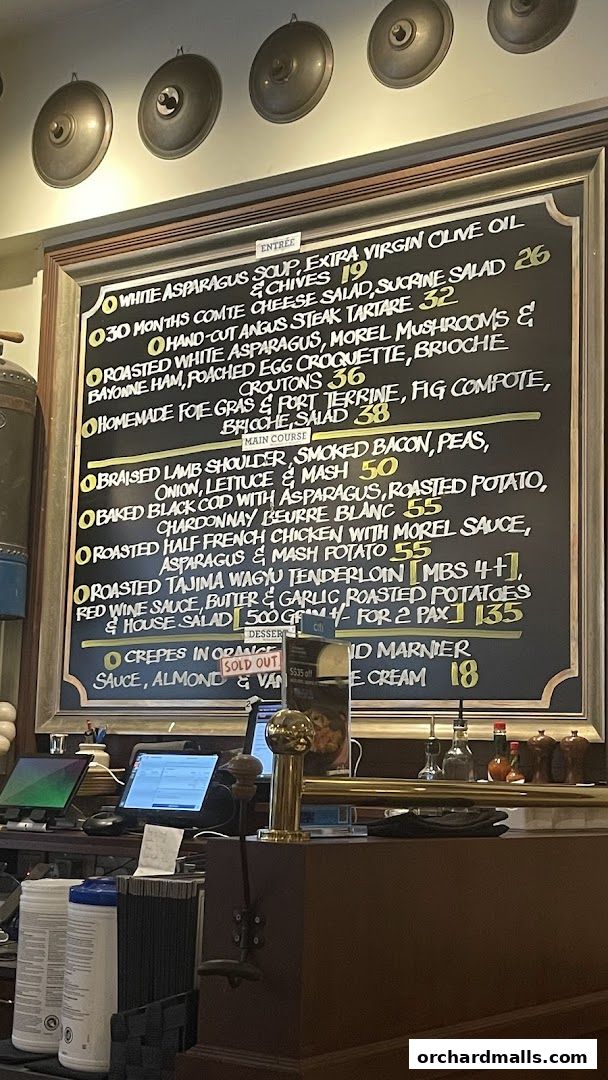 ENTRÉE
O WHITE ASPARAGUS SOUP, EXTRA VIRGIN OLIVE OIL
& CHIVES 19
O 30 MONTHS COMTE CHEESE SALAD, SUCRINE SALAD 26
O HAND-CUT ANGUS STEAK TARTARE 32
O ROASTED WHITE ASPARAGUS, MOREL MUSHROOMS &
BAYONNE HAM, POACHED EGG CROQUETTE, BRIOCHE
CROUTONS 36
O HOMEMADE FOIE GRAS & PORT TERRINE, FIG COMPOTE,
BRIOCHE, SALAD 38
MAIN COURSE
O BRAISED LAMB SHOULDER, SMOKED BACON, PEAS,
ONION, LETTUCE & MASH 50
O BAKED BLACK COD WITH ASPARAGUS, ROASTED POTATO,
CHARDONNAY BEURRE BLANC 55
O ROASTED HALF FRENCH CHICKEN WITH MOREL SAUCE,
ASPARAGUS & MASH POTATO 55
O ROASTED TAJIMA WAGYU TENDERLOIN [MBS 4+],
RED WINE SAUCE, BUTTER & GARLIC ROASTED POTATOES
& HOUSE SALAD [500 GRAM +/- FOR 2 PAX] 135
DESSERT
O CREPES IN ORANGE ND MARNIER
SOLD OUT
SAUCE, ALMOND & VAN E CREAM 18
citi
S$35 off
orchardmalls.com